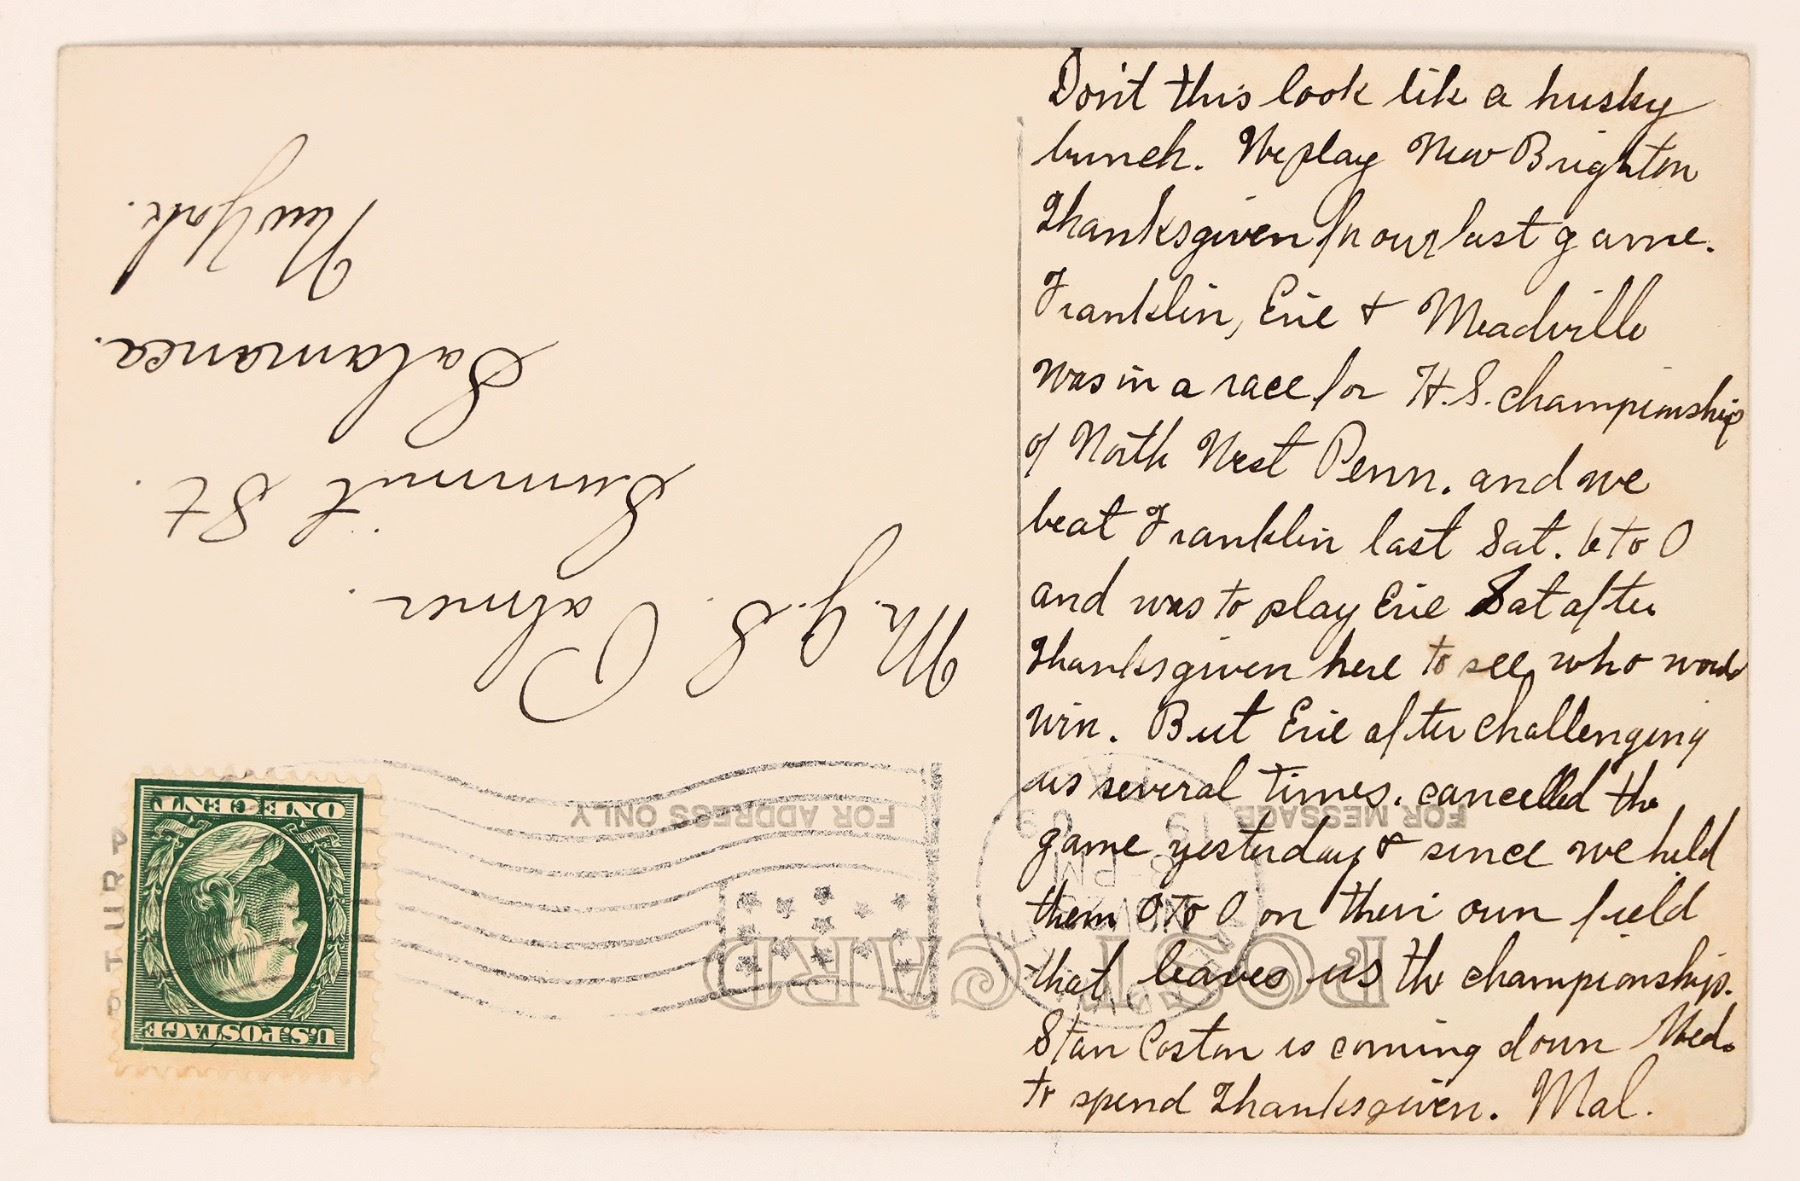 Don't this look lik a husky
bunch. We play New Brighton
Thanksgiven fr our last game.
Franklin, Erie & Meadville
was in a race for H.S. championship
of North West Penn. and we
beat Franklin last Sat. 6 to 0
and was to play Erie Sat after
Thanksgiven here to see who would
win. But Erie after challenging
us several times, cancelled the
game yesterday & since we held
them 0 to 0 on their own field
that leaves us the championship.
Stan Coston is coming down Wed.
to spend Thanksgiven. Mal.
Mr. J. S. Palmer.
Summit St.
Salamanca.
New York.
POST CARD
FOR MESSAGE
FOR ADDRESS ONLY
U.S. POSTAGE
ONE CENT